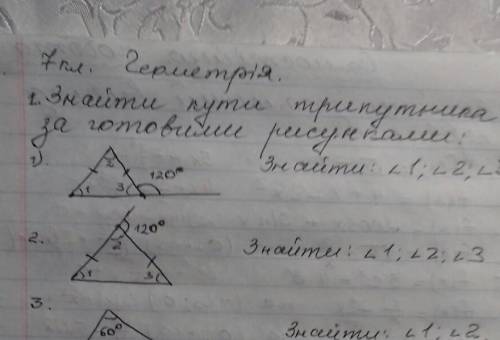 7 кл. Геометрія.
1. Знайти кути трикутника
за готовими рисунками:
1). 2 1 3 120° Знайти: ∠1; ∠2; ∠3
2. 120° 2 1 3 Знайти: ∠1; ∠2; ∠3
3. 60° Знайти: ∠1; ∠2